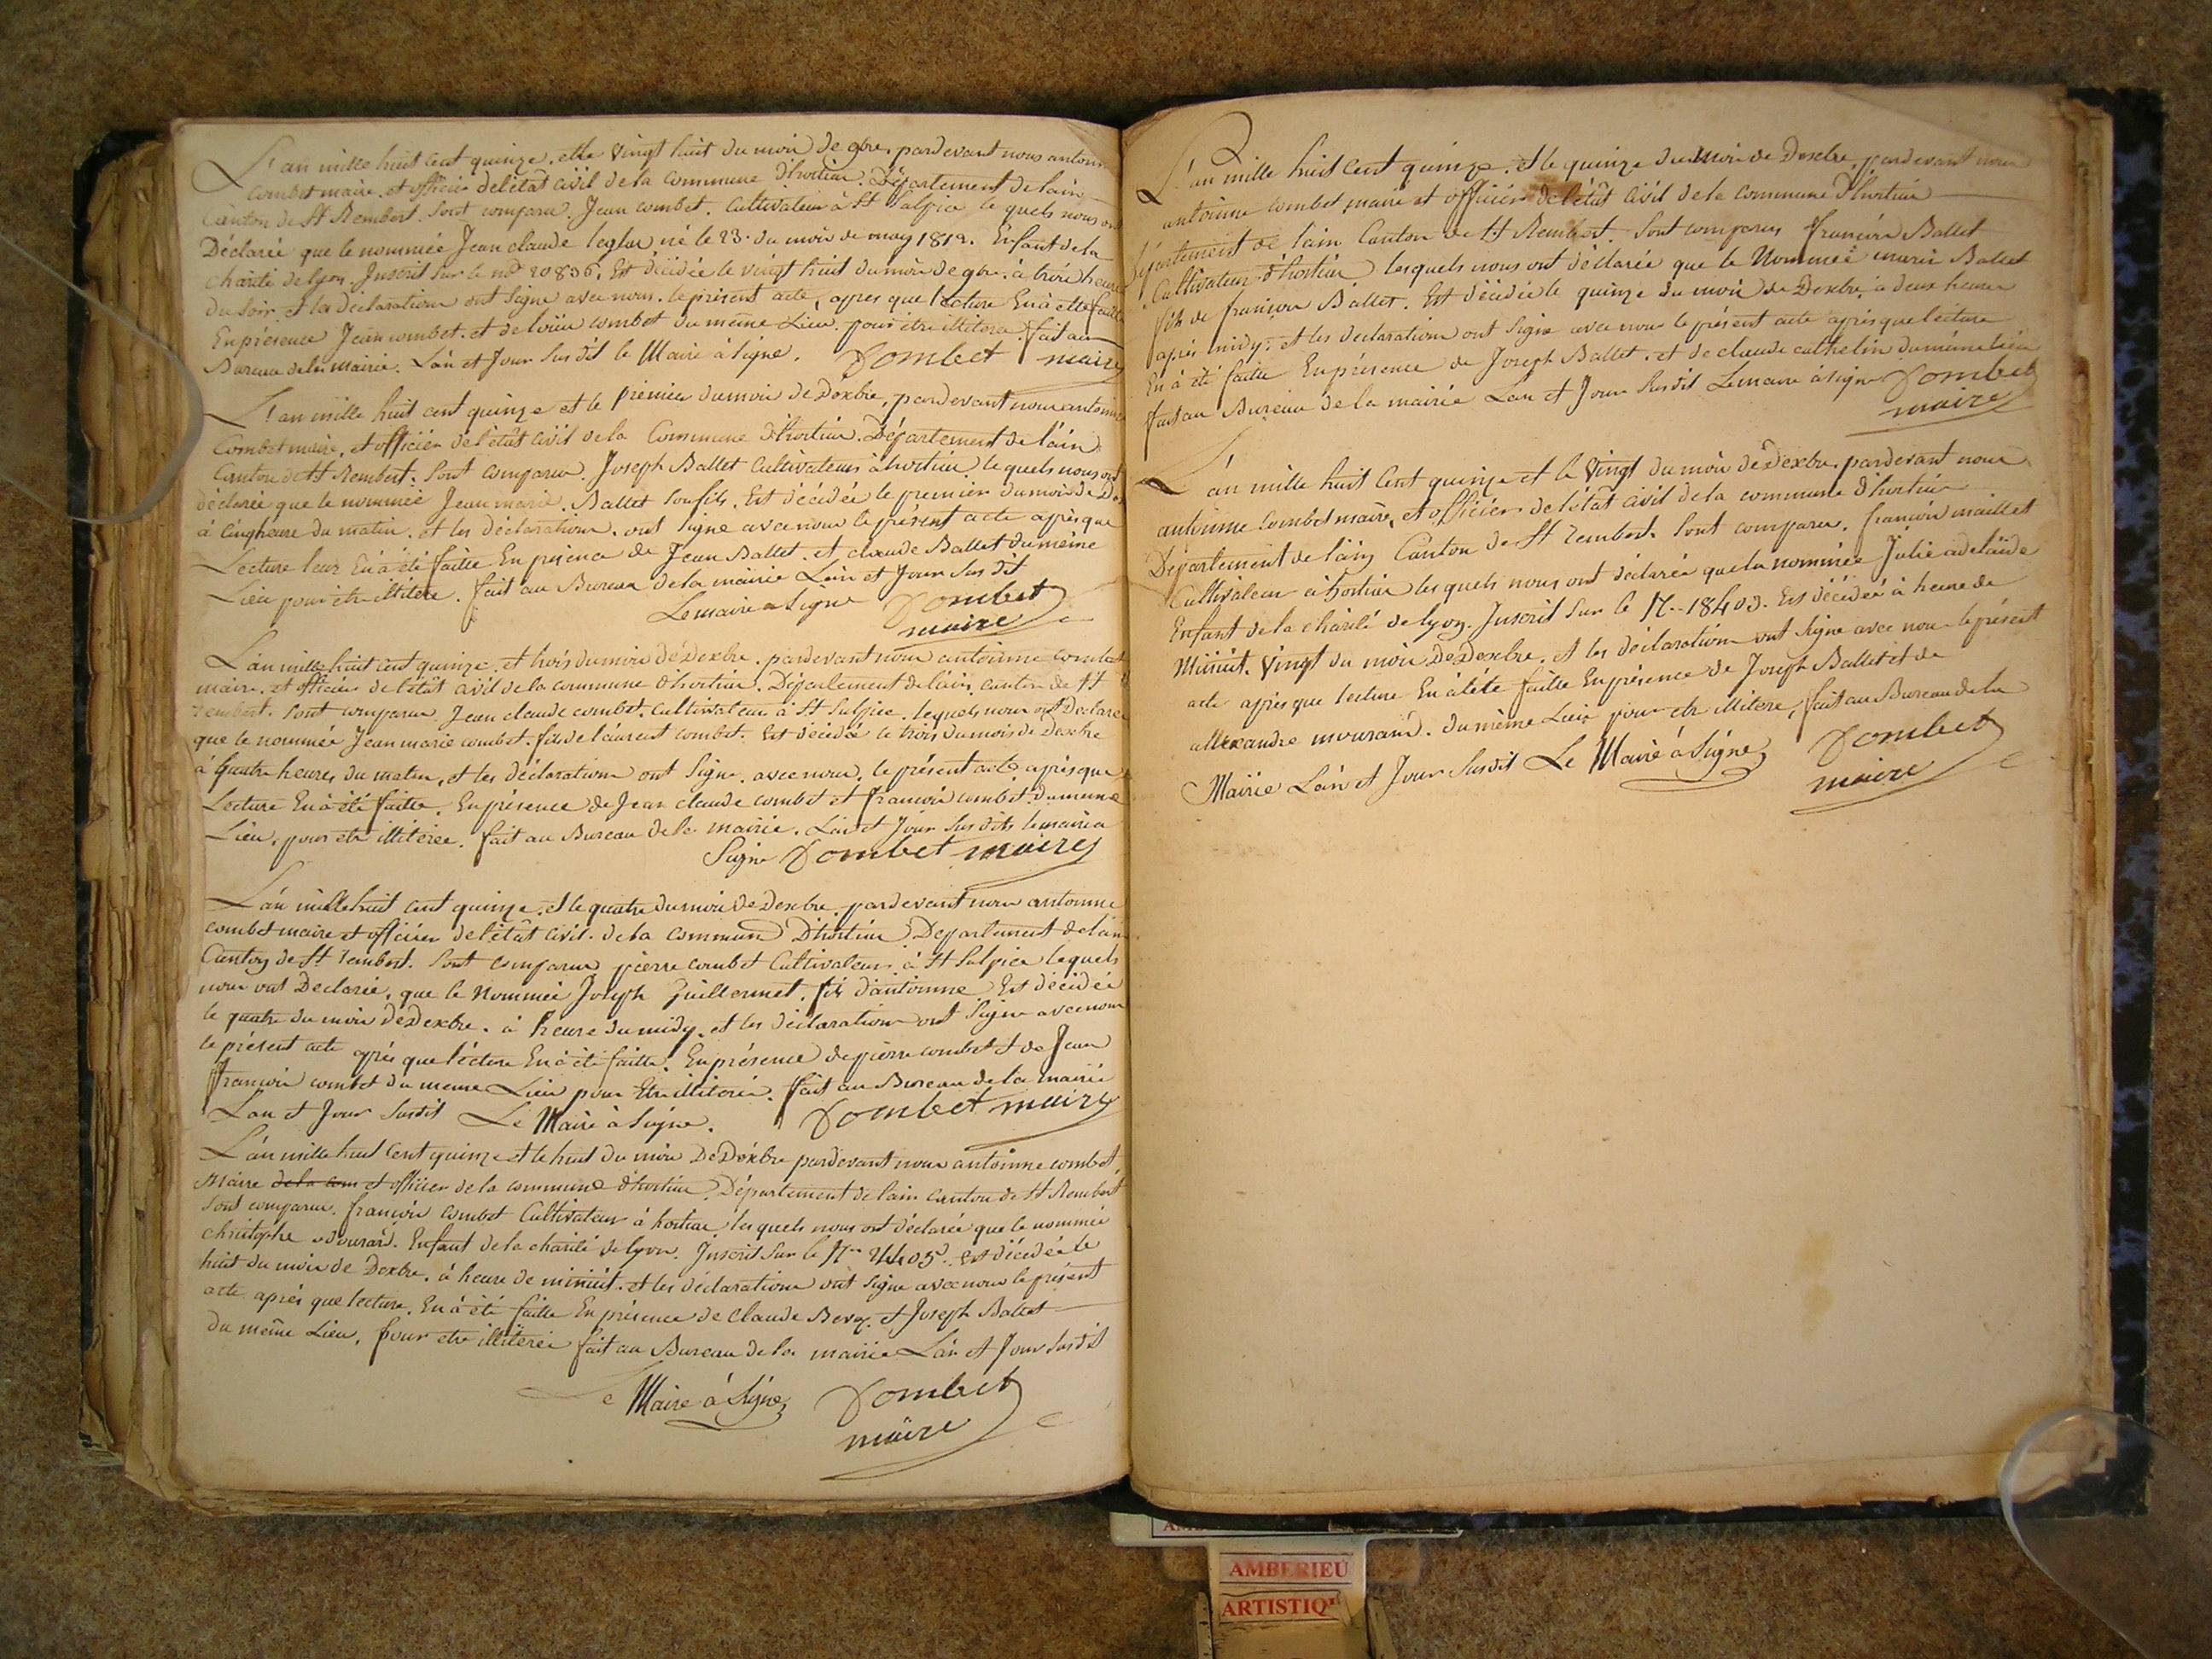 L'an mille huit cent quinze. et le vingt huit du moi de 9bre. pardevant nous antoine
combet maire. et officier de l'état civil de la commune d'hostias. Département de lain
Canton de St Rembert. Sont comparu. Jean combet. Cultivateur à St Sulpice le quels nous ont
Déclarée que le nommée Jean claude né le 23. du moi de may 1812. Enfant de la
charité de lyon. Inscrit sur le no 20836. Est décédée le vingt huit du moi de 9bre. à trois heure
du soir. et les declaration ont Signe avec nous. le présent acte, apres que lecture En à eté faitte
En présence Jean combet. et de combet du même Lieu. pour être illitere. fait au
Bureau de la Mairie. L'an et Jour sus dit le Maire à Signe. Combet maire
L'an mille huit cent quinze et le premier du moi de Dexbre, pardevant nous antoine
Combet maire, et officier de l'état civil de la Commune d'hostias. Département de l'ain
Canton de St Rembert. Sont comparu. Joseph Ballet Cultivateur à hostias le quels nous ont
déclarée que le nommée Jean marie. Ballet son fils. Est décédée le premier du mois de
à cinq heure du matin. et les déclaration. ont signe avec nous le présent acte après que
Lecture leur En à été faitte En présence de Jean Ballet. et claude Ballet du même
Lieu pour etre illitere. fait au Bureau de la mairie L'an et Jour sus dit
Le maire a Signe Combet
maire
L'an mille huit cent quinze. et trois du moi de Dexbre. pardevant nous antoine combet
maire. et officier de l'état civil de la commune d'hostias. Département de l'ain, canton de St
rembert. Sont comparu Jean claude combet. cultivateur à St Sulpice. le quels nous ont Declaree
que le nommée Jean marie combet. fils de laurent combet. Est décédée le trois du mois de Dexbre
à quatre heures du matin, et les déclaration ont Signe. avec nous. le présent acte après que
Lecture En à été faitte. En présence de Jean claude combet et françois combet. du meme
Lieu. pour etre illiterée. fait au Bureau de la mairie. L'an et Jour sus dits le maire a
Signe Combet maire
L'an mille huit cent quinze. et le quatre du moi de Dexbre. pardevant nous antoinne
combet maire et officier de l'état civil. de la commune D'hostias Departement de l'ain
Canton de St rembert. Sont comparu pierre combet Cultivateur à St Sulpice le quels
nous ont Declaree, que le Nommée Joseph Guillermet. fils d'antoinne Est décédée
le quatre du moi de Dexbre. à heure du midy. et les déclaration ont Signe avec nous
le present acte après que l'écture En à été faitte. En présence de pierre combet et de Jean
françois combet du meme Lieu pour Etre illiterée. fait au Bureau de la mairie
L'an et Jour susdit Le Maire à Signe. Combet maire
L'an mille huit cent quinze et le huit du moi De Dexbre pardevant nous antoinne combet
Maire de la com et officier de la commune d'hostias. Département de lain canton de St Rembert
Sont comparu. françois combet Cultivateur à hostias, les quels nous ont déclarée que le nommée
christophe Enfant de la charité de lyon. Inscrit sur le no 24405. est décédée le
huit du moi de Dexbre. à heure de minuit. et les déclaration ont Signe avec nous le présent
acte après que lecture. En à été faitte En présence de claude et Joseph Ballet
du même Lieu. pour etre illiterée fait au Bureau de la mairie L'an et Jour susdit
Le Maire à Signe Combet
maire
L'an mille huit cent quinze. et le quinze du Moi de Dexbre, pardevant nous
antoinne combet maire et officier de l'état civil de la commune D'hostias
Département de lain Canton de St Rembert. Sont comparus françois Ballet
Cultivateur d'hostias lesquels nous ont déclarée que le Nommée marie Ballet
fils de françois Ballet. Est décédée le quinze du moi de Dexbre, à deux heures
après midy. et les déclaration ont signe avec nous le présent acte après que lecture
En à été faitte En présence de Joseph Ballet. et de claude cathelin du même lieu
fait au Bureau de la mairie L'an et Jour sus dit Le maire à signe Combet
maire
L'an mille huit cent quinze et le vingt du moi de Dexbre. pardevant nous
antoinne combet maire, et officier de l'état civil de la commune d'hostias
Département de lain Canton de St rembert. Sont comparu. françois maillet
cultivateur à hostias lesquels nous ont déclarée que la nommée Julie adelaïde
Enfant de la charité de lyon. Inscrit sur le no 18403. Est décédée à heure de
Minuit. vingt du moi De Dexbre. et les déclaration ont signe avec nous le présent
acte après que lecture En à été faitte En présence de Joseph Ballet et de
allexandre mourand. du même Lieu pour etre illitere, fait au Bureau de la
Mairie L'an et Jour susdit Le Maire à Signe Combet
maire
AMBERIEU
ARTISTIQ